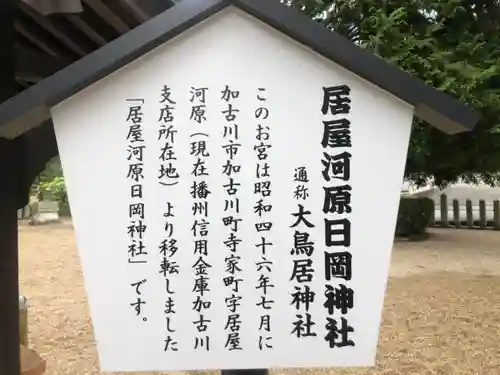 居屋河原日岡神社
通称 大鳥居神社
このお宮は昭和四十六年七月に
加古川市加古川町寺家町字居屋
河原（現在播州信用金庫加古川
支店所在地）より移転しました
「居屋河原日岡神社」です。